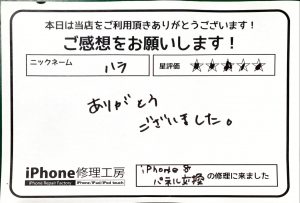 本日は当店をご利用頂きありがとうございます！
ご感想をお願いします！
ニックネーム ハラ 星評価 ★★★★★
ありがとう
ございました。
iPhone修理工房
iPhone Repair Factory iPhone/iPad/iPod touch
iPhone8
パネル交換 の修理に来ました